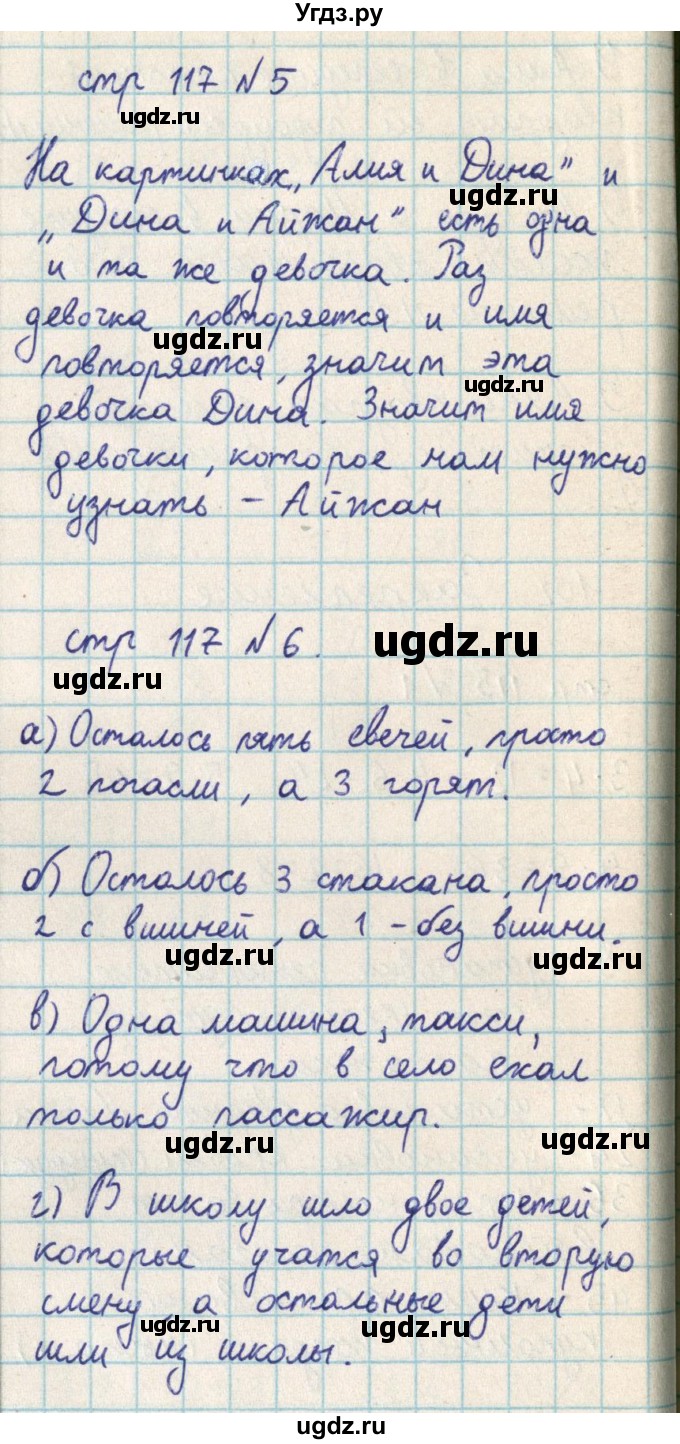 Угдз.ру
стр 117 №5
ugdz.ru
На картинках „Алия и Дина" и
ugdz.ru
„Дина и Айжан" есть одна
и та же девочка. Раз
девочка повторяется и имя
ugdz.ru
повторяется, значит эта
ugdz.ru
девочка Дина. Значит имя
девочки, которое нам нужно
узнать – Айжан
стр 117 №6.
ugdz.ru
ugdz.ru
а) Осталось пять свечей, просто
2 погасли, а 3 горят.
б) Осталось 3 стакана, просто
2 с вишней, а 1 – без вишни.
ugdz.ru
ugdz.ru
в) Одна машина, такси,
потому что в село ехал
только пассажир.
ugdz.ru
ugdz.ru
г) В школу шло двое детей,
которые учатся во вторую
смену, а остальные дети
ugdz.ru
ugdz.ru
шли из школы.
ugdz.ru